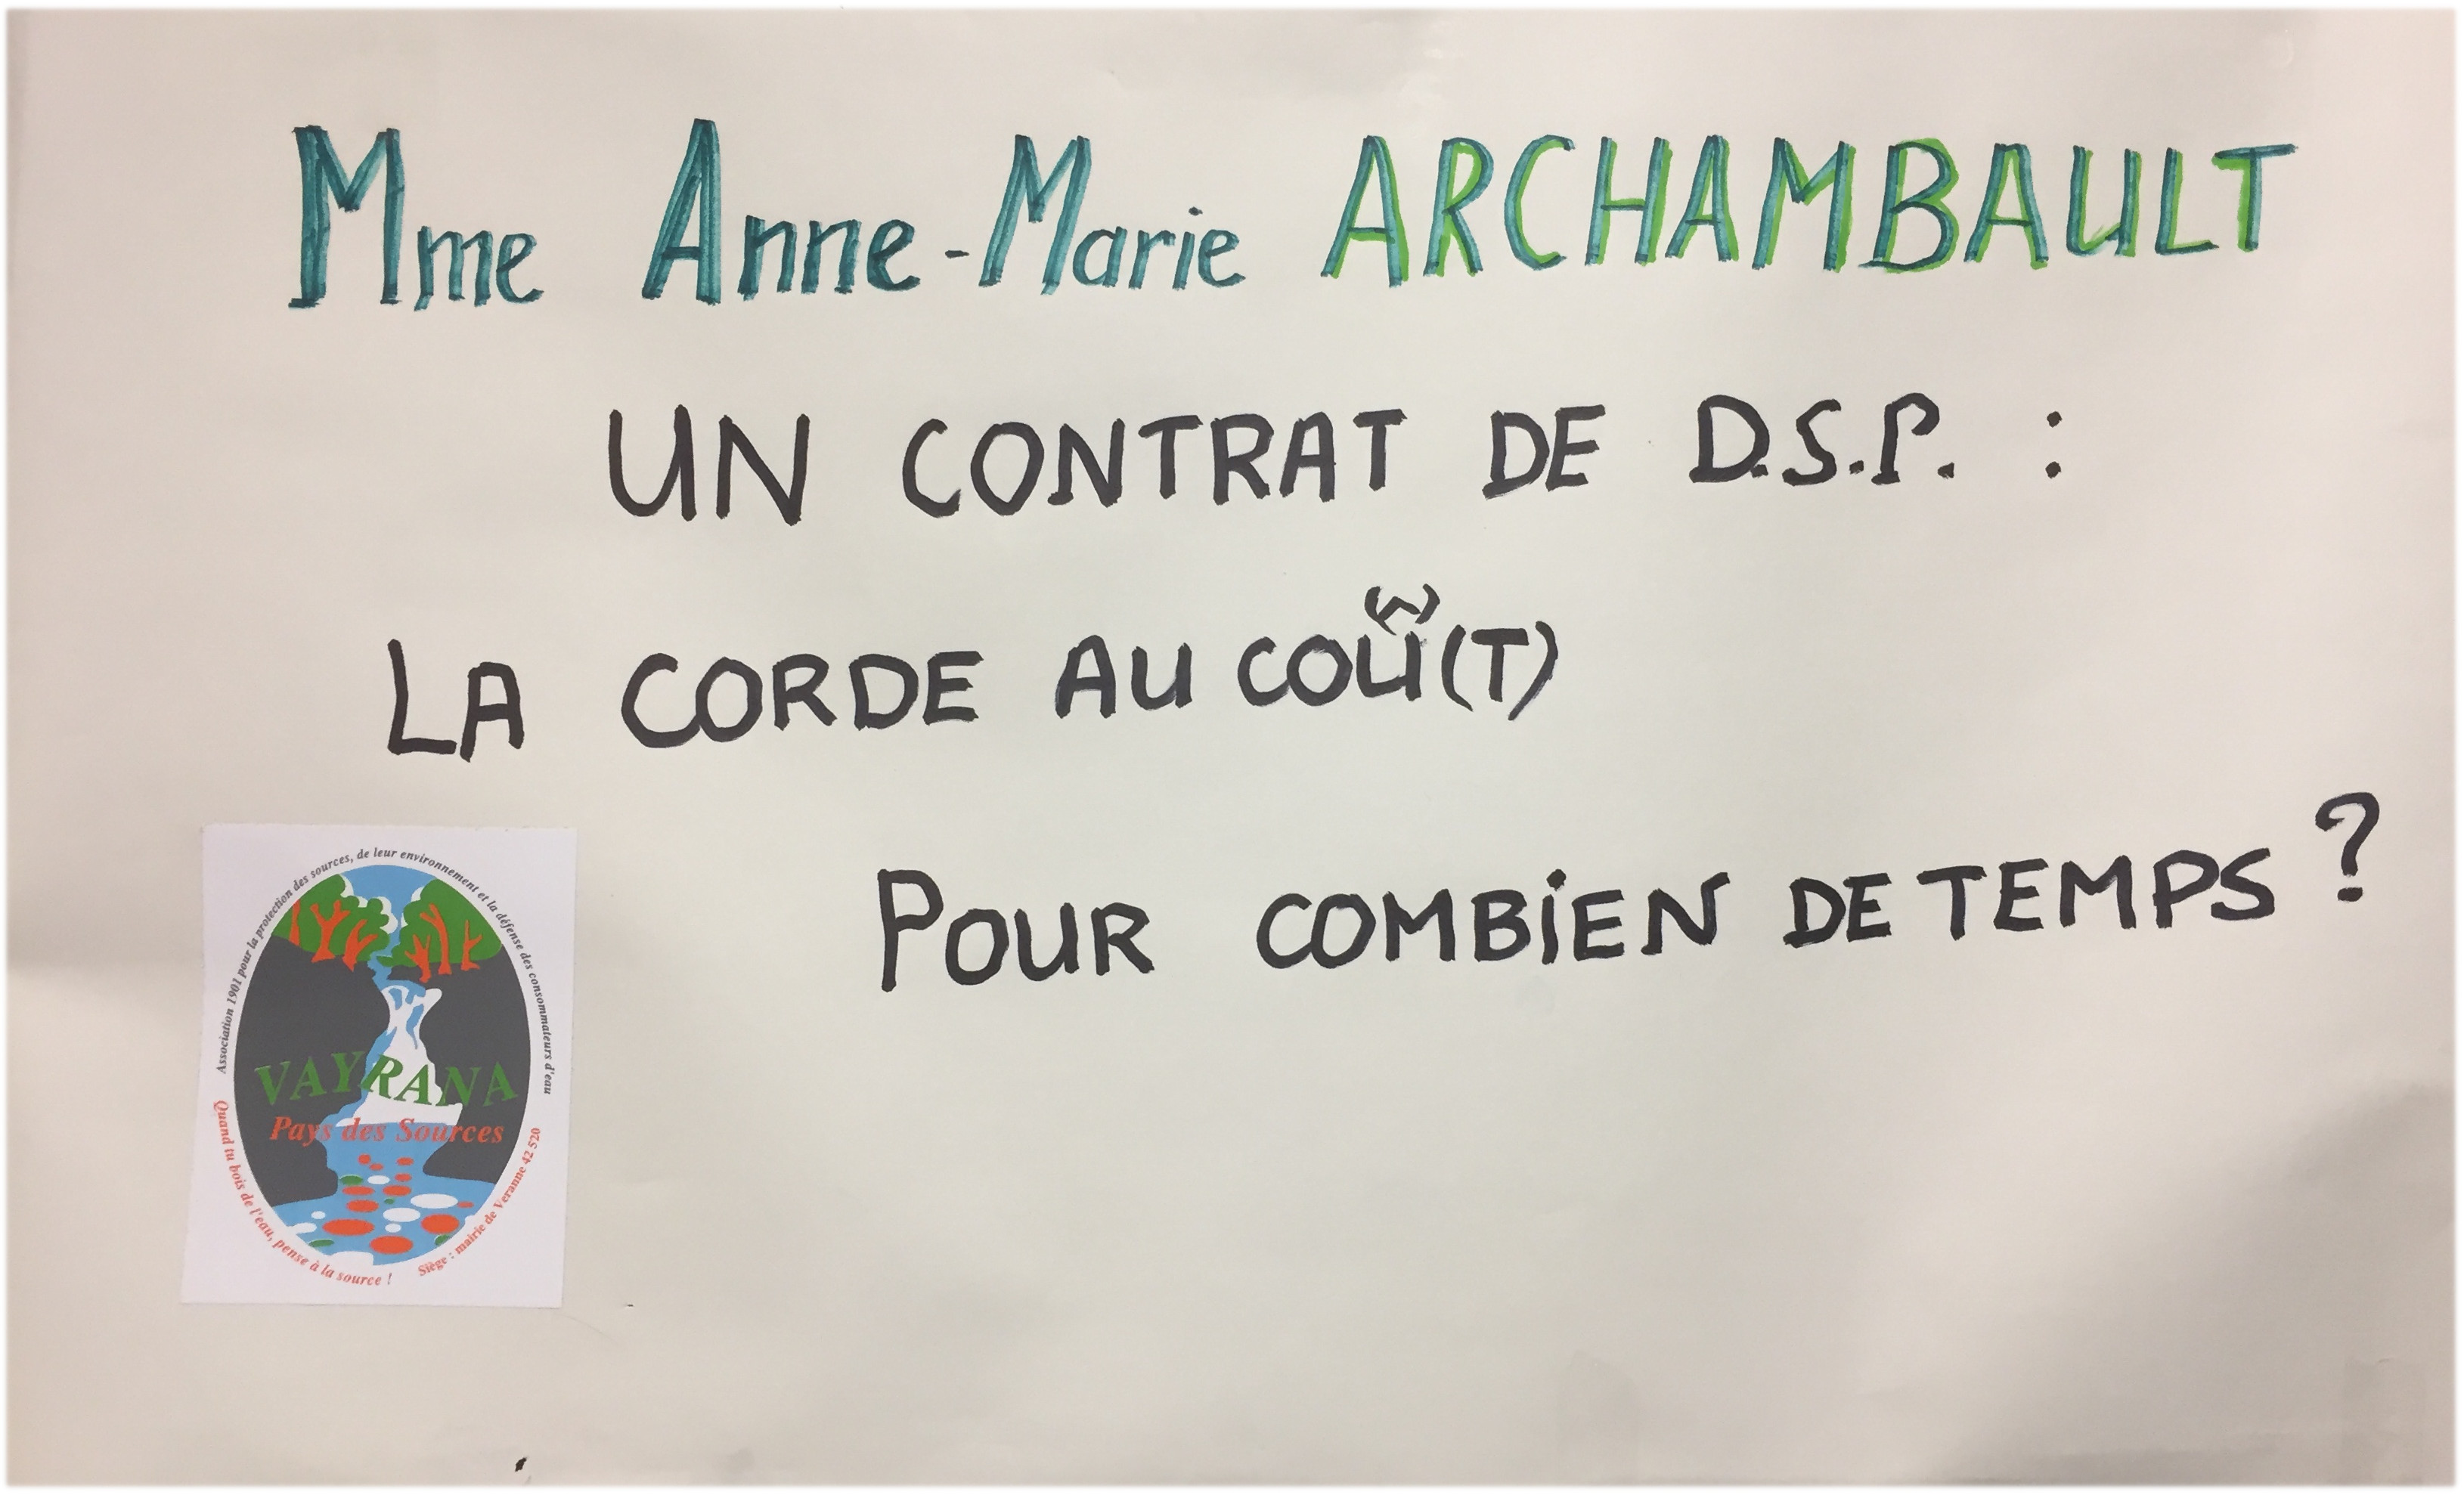 Mme Anne-Marie ARCHAMBAULT
UN CONTRAT DE D.S.P. :
LA CORDE AU COU(^)(T)
POUR COMBIEN DE TEMPS ?
Association 1901 pour la protection des sources, de leur environnement et la défense des consommateurs d'eau
VAYRANA
Pays des Sources
Quand tu bois de l'eau, pense à la source !
Siège : mairie de Veranne 42 520